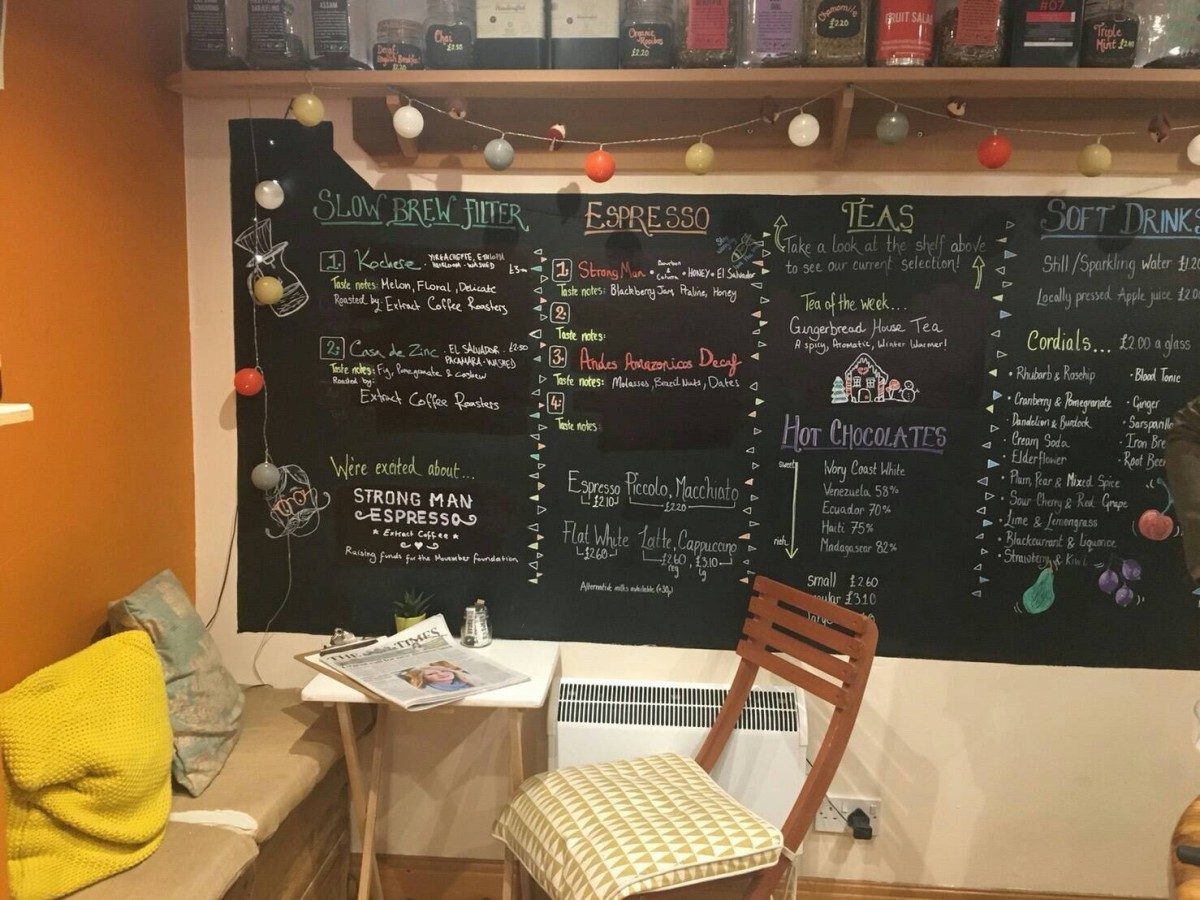 ASSAM
Decaf
English Breakfast
£2.20
Chai
£2.50
Organic
Rooibos
2.20
Chamomile
£2.20
FRUIT SALAD
#07
Triple
Mint £2.40
SLOW BREW FILTER
1. Kochere
HEIRLOOM · WASHED
Taste notes: Melon, Floral, Delicate
Roasted by: Extract Coffee Roasters
2. Casa de Zinc EL SALVADOR £2.50
PACAMARA · WASHED
Taste notes: Fig, Pomegranate & cashew
Roasted by:
Extract Coffee Roasters
We're excited about...
STRONG MAN
ESPRESSO
* Extract Coffee *
Raising funds for the Movember foundation
ESPRESSO
1. Strong Man · Bourbon & Caturra · HONEY · El Salvador
Taste notes: Blackberry Jam, Praline, Honey
2.
Taste notes:
3. Andes Amazonicas Decaf
Taste notes: Molasses, Brazil Nuts, Dates
4.
Taste notes:
Espresso Piccolo, Macchiato
£2.10 £2.20
Flat White Latte, Cappuccino
£2.60 £2.60, £3.10
reg lg
Alternative milks available (+30p)
TEAS
Take a look at the shelf above
to see our current selection!
Tea of the week...
Gingerbread House Tea
A spicy, Aromatic, Winter Warmer!
HOT CHOCOLATES
sweet
Ivory Coast White
Venezuela 58%
Ecuador 70%
Haiti 75%
Madagascar 82%
rich
small £2.60
£3.10
SOFT DRINKS
Still/Sparkling Water £1.20
Locally pressed Apple juice
Cordials... £2.00 a glass
· Rhubarb & Rosehip
· Cranberry & Pomegranate
· Dandelion & Burdock
· Cream Soda
· Elderflower
· Plum, Pear & Mixed Spice
· Sour Cherry & Red Grape
· Lime & Lemongrass
· Blackcurrant & Liquorice
· Strawberry & Kiwi
· Blood Tonic
· Ginger
· Sarsparilla
· Iron Bre
· Root Beer
THE TIMES